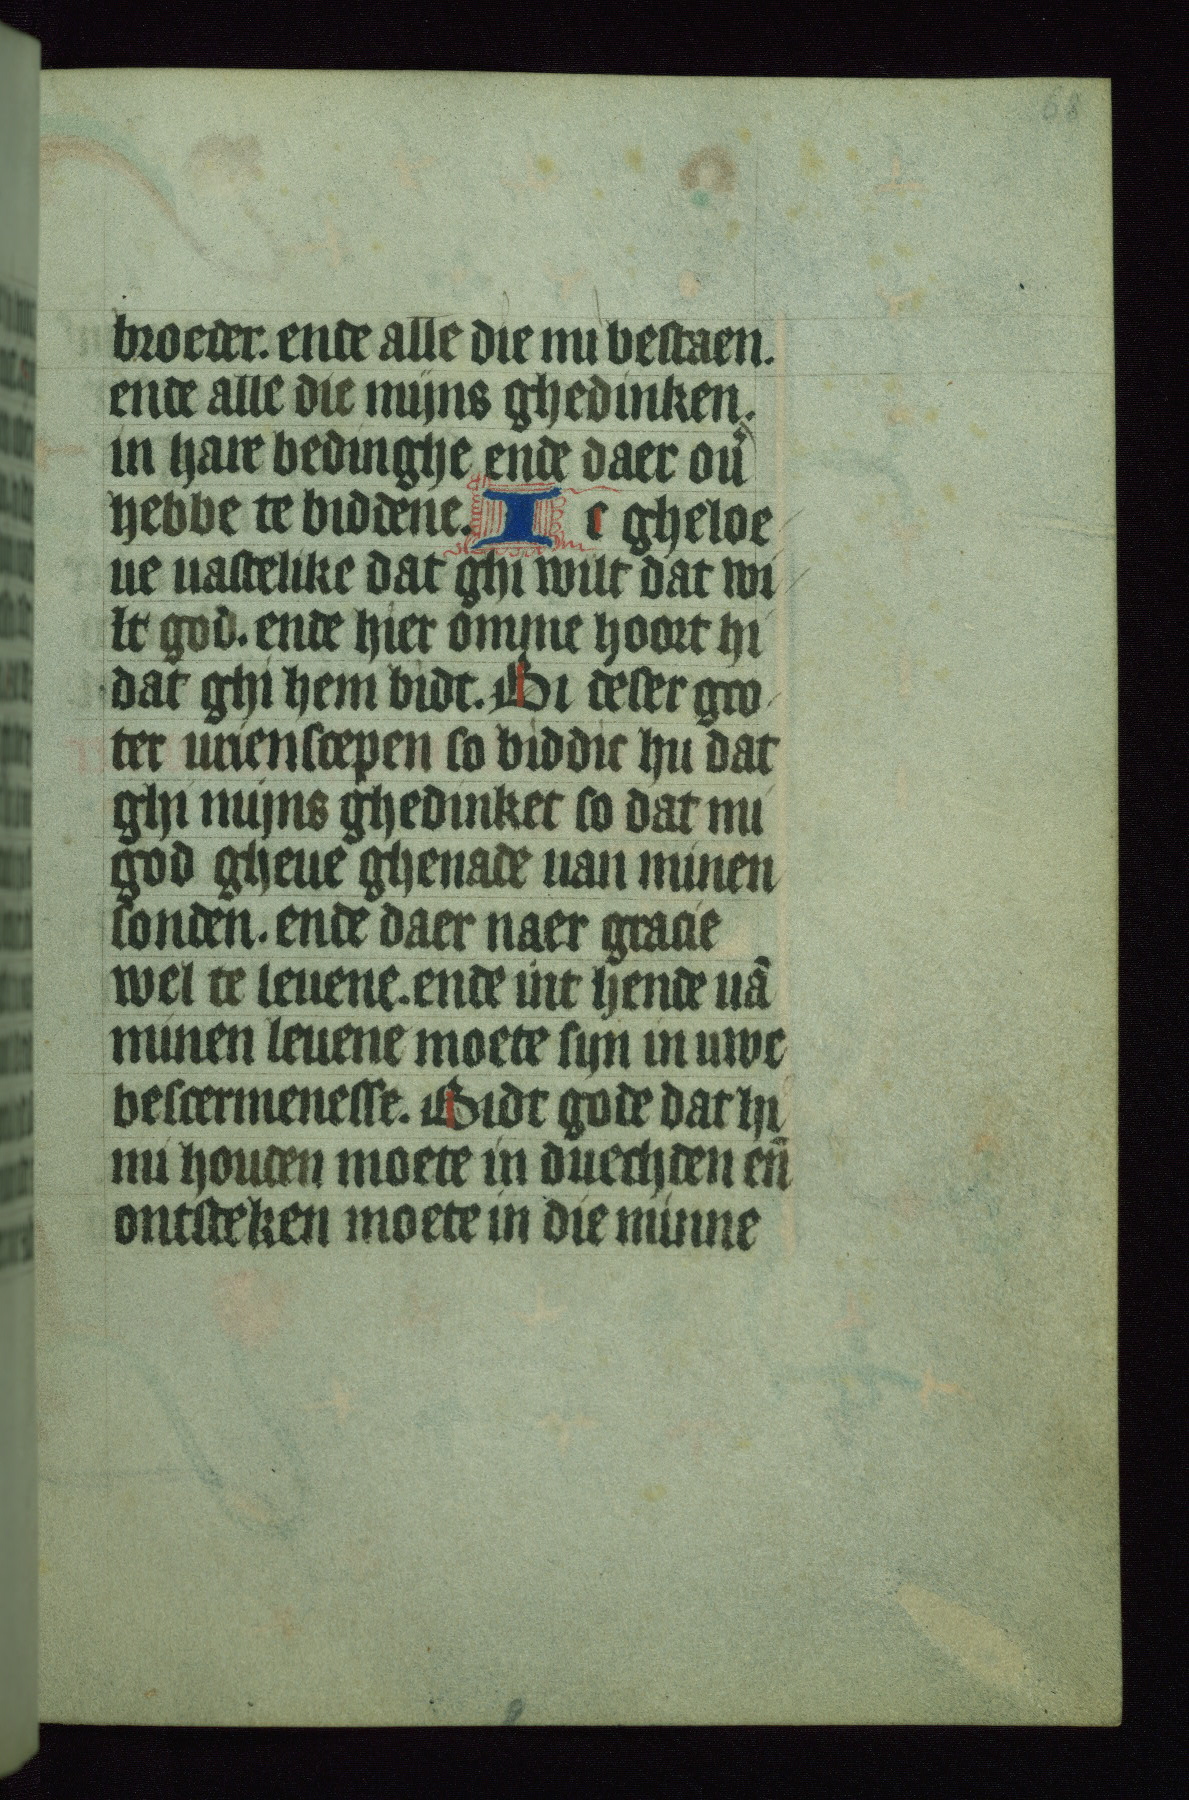 68
broeder. ende alle die mi bestaen.
ende alle die mijns ghedinken.
in hare bedinghe ende daer ou͛
hebbe te biddene. Ic gheloe
ue uastelike dat ghi wilt dat wi
lt god. ende hier omme hoort hi
dat ghi hem bidt. Bi deser gro
ter urienscepen so biddic hu dat
ghi mijns ghedinket so dat mi
god gheue ghenade uan minen
sonden. ende daer naer gracie
wel te leuene. ende int hende uā
minen leuene moete sijn in uwe
bescermenesse. Bidt gode dat hi
mi houden moete in duechden en̄
ontsteken moete in die minne